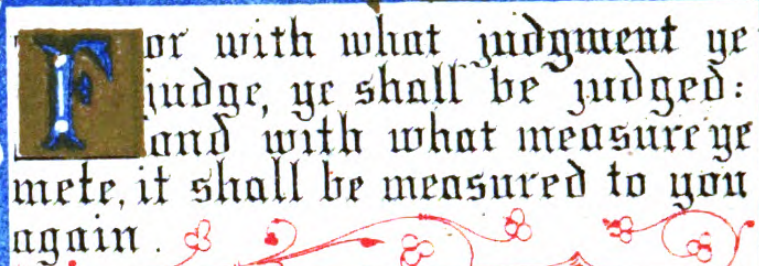 For with what judgment ye
judge, ye shall be judged:
and with what measure ye
mete, it shall be measured to you
again.